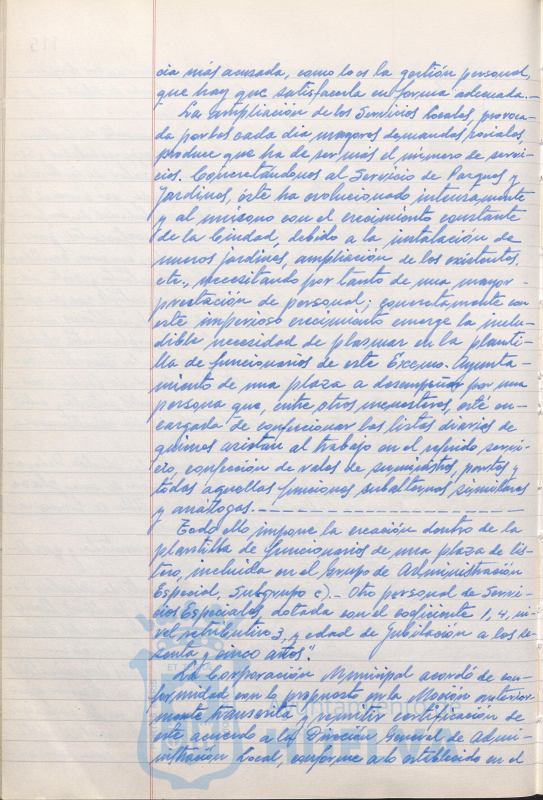 cia más acusada, como lo es la gestión personal,
que hay que satisfacerla en forma adecuada.-
La ampliación de los Servicios locales, provoca-
da por los cada dia mayores demandas sociales,
produce que ha de ser más el número de servi-
cios. Concretándonos al Servicio de Parques y
Jardines, éste ha evolucionado intensamente
y al unísono con el crecimiento constante
de la Ciudad, debido a la instalación de
nuevos jardines, ampliación de los existentes,
etc., necesitando por tanto de una mayor
prestación de personal; concretamente con
este imperioso crecimiento emerge la inelu-
dible necesidad de plasmar en la planti-
lla de funcionarios de este Excmo. Ayunta-
miento de una plaza a desempeñar por una
persona que, entre otros menesteres, esté en-
cargada de confeccionar las listas diarias de
quienes asistan al trabajo en el referido servi-
cio, confección de vales de suministros, partes y
todas aquellas funciones subalternas similares
y análogas.-
Todo ello impone la creación dentro de la
plantilla de funcionarios de una plaza de lis-
tero, incluida en el Grupo de Administración
Especial, Subgrupo c).- Otro personal de Servi-
cios Especiales, dotada con el coeficiente 1,4, ni-
vel retributivo 3, y edad de jubilación a los se-
senta y cinco años".
La Corporación Municipal acordó de con-
formidad con la propuesta en la Moción anterior-
mente transcrita y remitir certificación de
este acuerdo a la Dirección General de Admi-
nistración Local, conforme a lo establecido en el
Ayuntamiento de
HUELVA